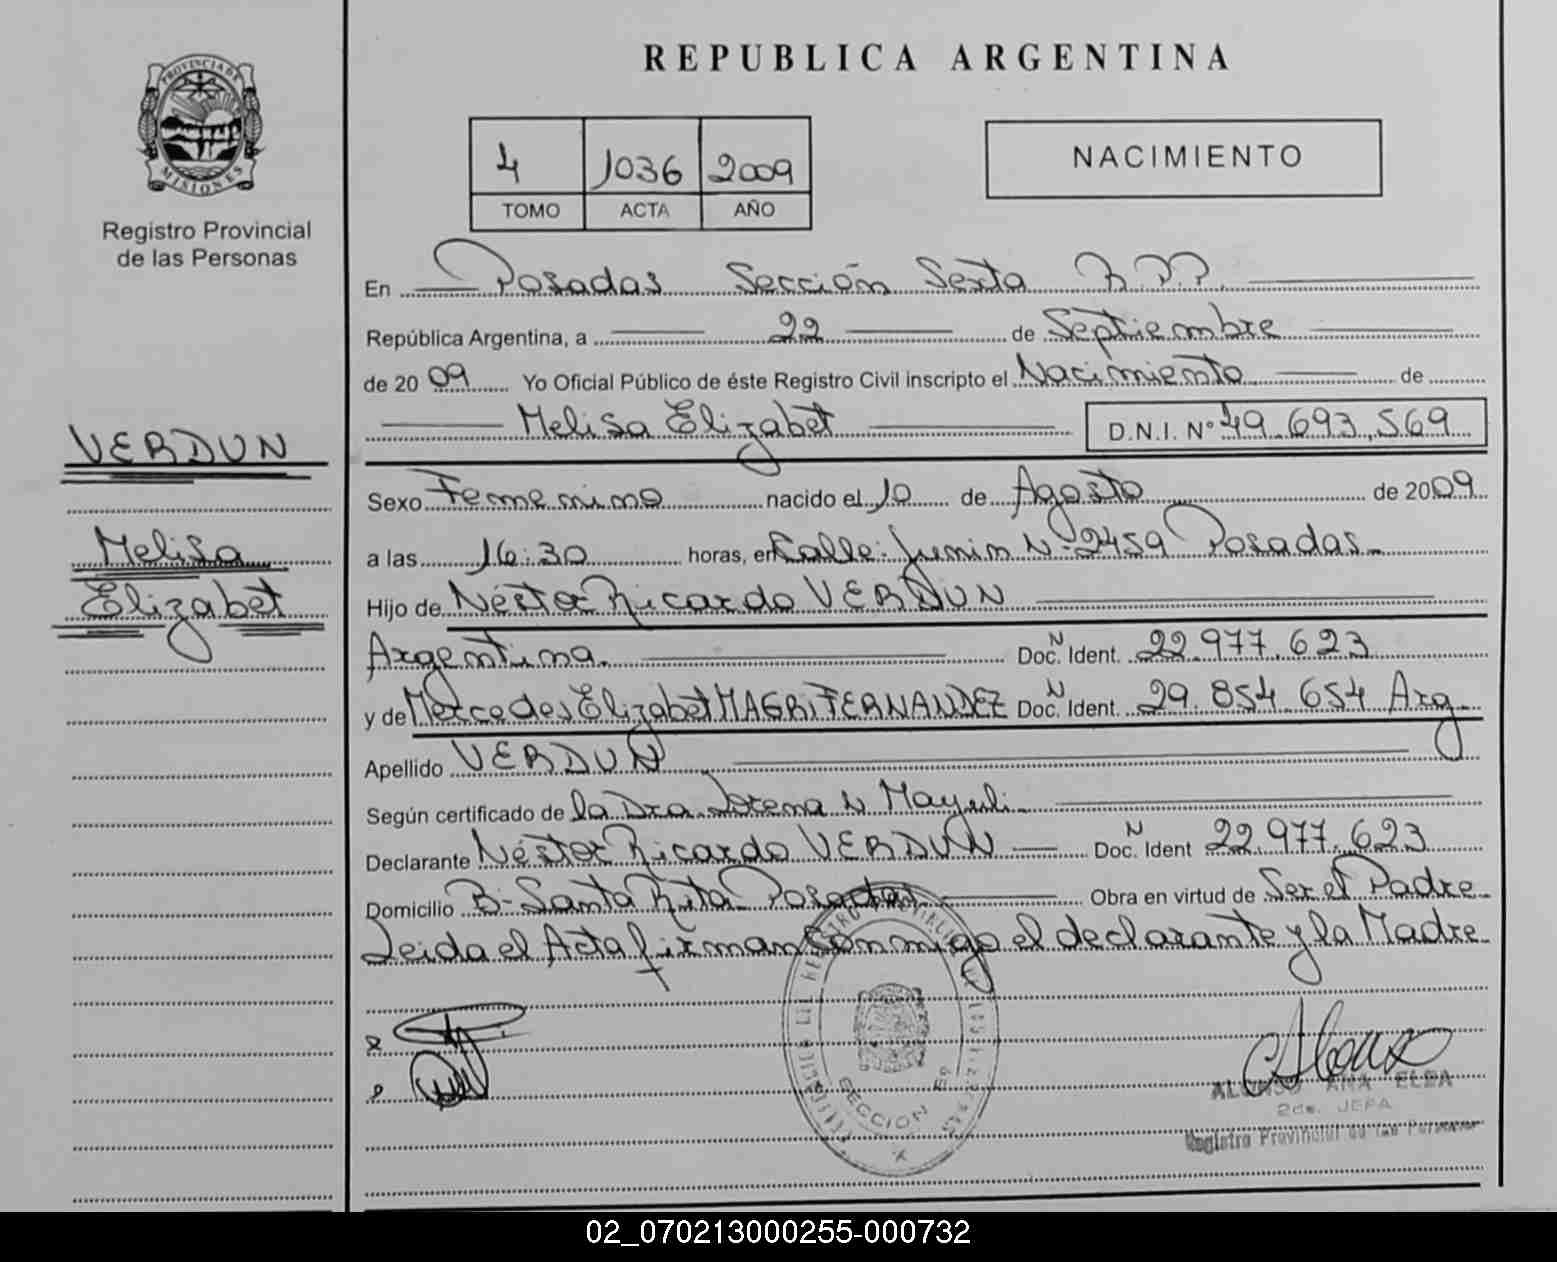 PROVINCIA DE
MISIONES
Registro Provincial
de las Personas
VERDUN
Melisa
Elizabet
REPUBLICA ARGENTINA
4 1036 2009
TOMO ACTA AÑO
NACIMIENTO
En Posadas Sección Sexta R.P.P.
República Argentina, a 22 de Septiembre
de 2009 Yo Oficial Público de éste Registro Civil inscripto el Nacimiento de
Melisa Elizabet D.N.I. Nº 49.693.569
Sexo Femenino nacido el 10 de Agosto de 2009
a las 16:30 horas, en Calle: Junin Nº 2459 Posadas
Hijo de Néstor Ricardo VERDUN
Argentina Doc. Ident. N 22.977.623
y de Mercedes Elizabet MAGRI FERNANDEZ Doc. Ident. N 29.854.654 Arg.
Apellido VERDUN
Según certificado de la Dra. Lorena N
Declarante Néstor Ricardo VERDUN Doc. Ident N 22.977.623
Domicilio B- Santa Rita Posadas Obra en virtud de Ser el Padre
Leida el Acta firman Conmigo el declarante y la Madre
SECCION 6ª
ALONSO ANA ELBA
2da. JEFA
Registro Provincial de las Personas
02_070213000255-000732